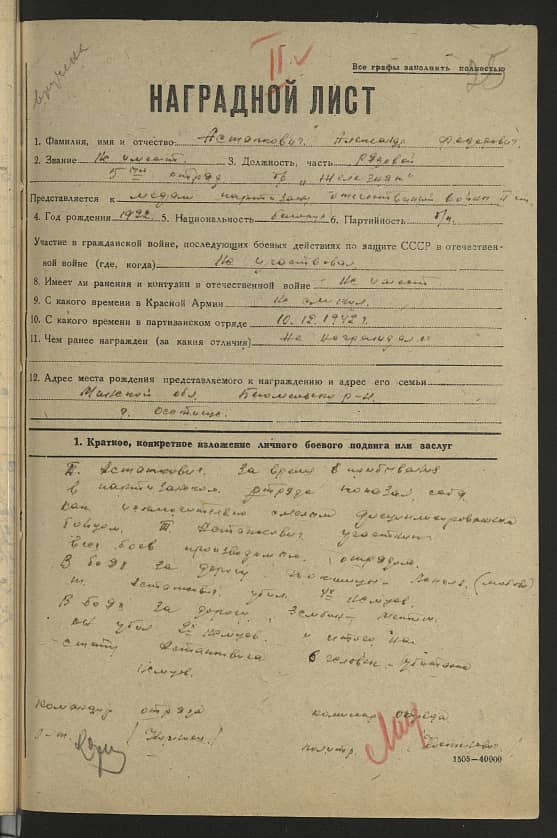 вручена
II
25
Все графы заполнить полностью
НАГРАДНОЙ ЛИСТ
1. Фамилия, имя и отчество Астапкович Александр Федорович
2. Звание Не имеет. 3. Должность, часть рядовой
5 отряд бр „Железняк"
Представляется к медали партизан отечественной войны II ст.
4. Год рождения 1922 5. Национальность 6. Партийность б/п
Участие в гражданской войне, последующих боевых действиях по защите СССР в отечествен-
ной войне (где, когда) Не участвовал
8. Имеет ли ранения и контузии в отечественной войне Не имеет
9. С какого времени в Красной Армии Не служил.
10. С какого времени в партизанском отряде 10.12.1942 г.
11. Чем ранее награжден (за какия отличия) не награждался
12. Адрес места рождения представляемого к награждению и адрес его семьи
Минской обл. Бегомльского р-н.
д. Осетище.
1. Краткое, конкретное изложение личного боевого подвига или заслуг
Т. Астапкович. За время пребывания
в партизанском отряде показал себя
как исключительно смелым дисциплинированным
бойцом. Т. Астапкович участник
всех боев отрядом.
В боях за дорогу Лепель
т. Астапкович убил 4х немцев.
В боях за дорогу Зембин
он убил 2х немцев. и итого на
счету Астапковича 6 человек убитыми
немцев.
Командир отряда комиссар отряда
1505—40000